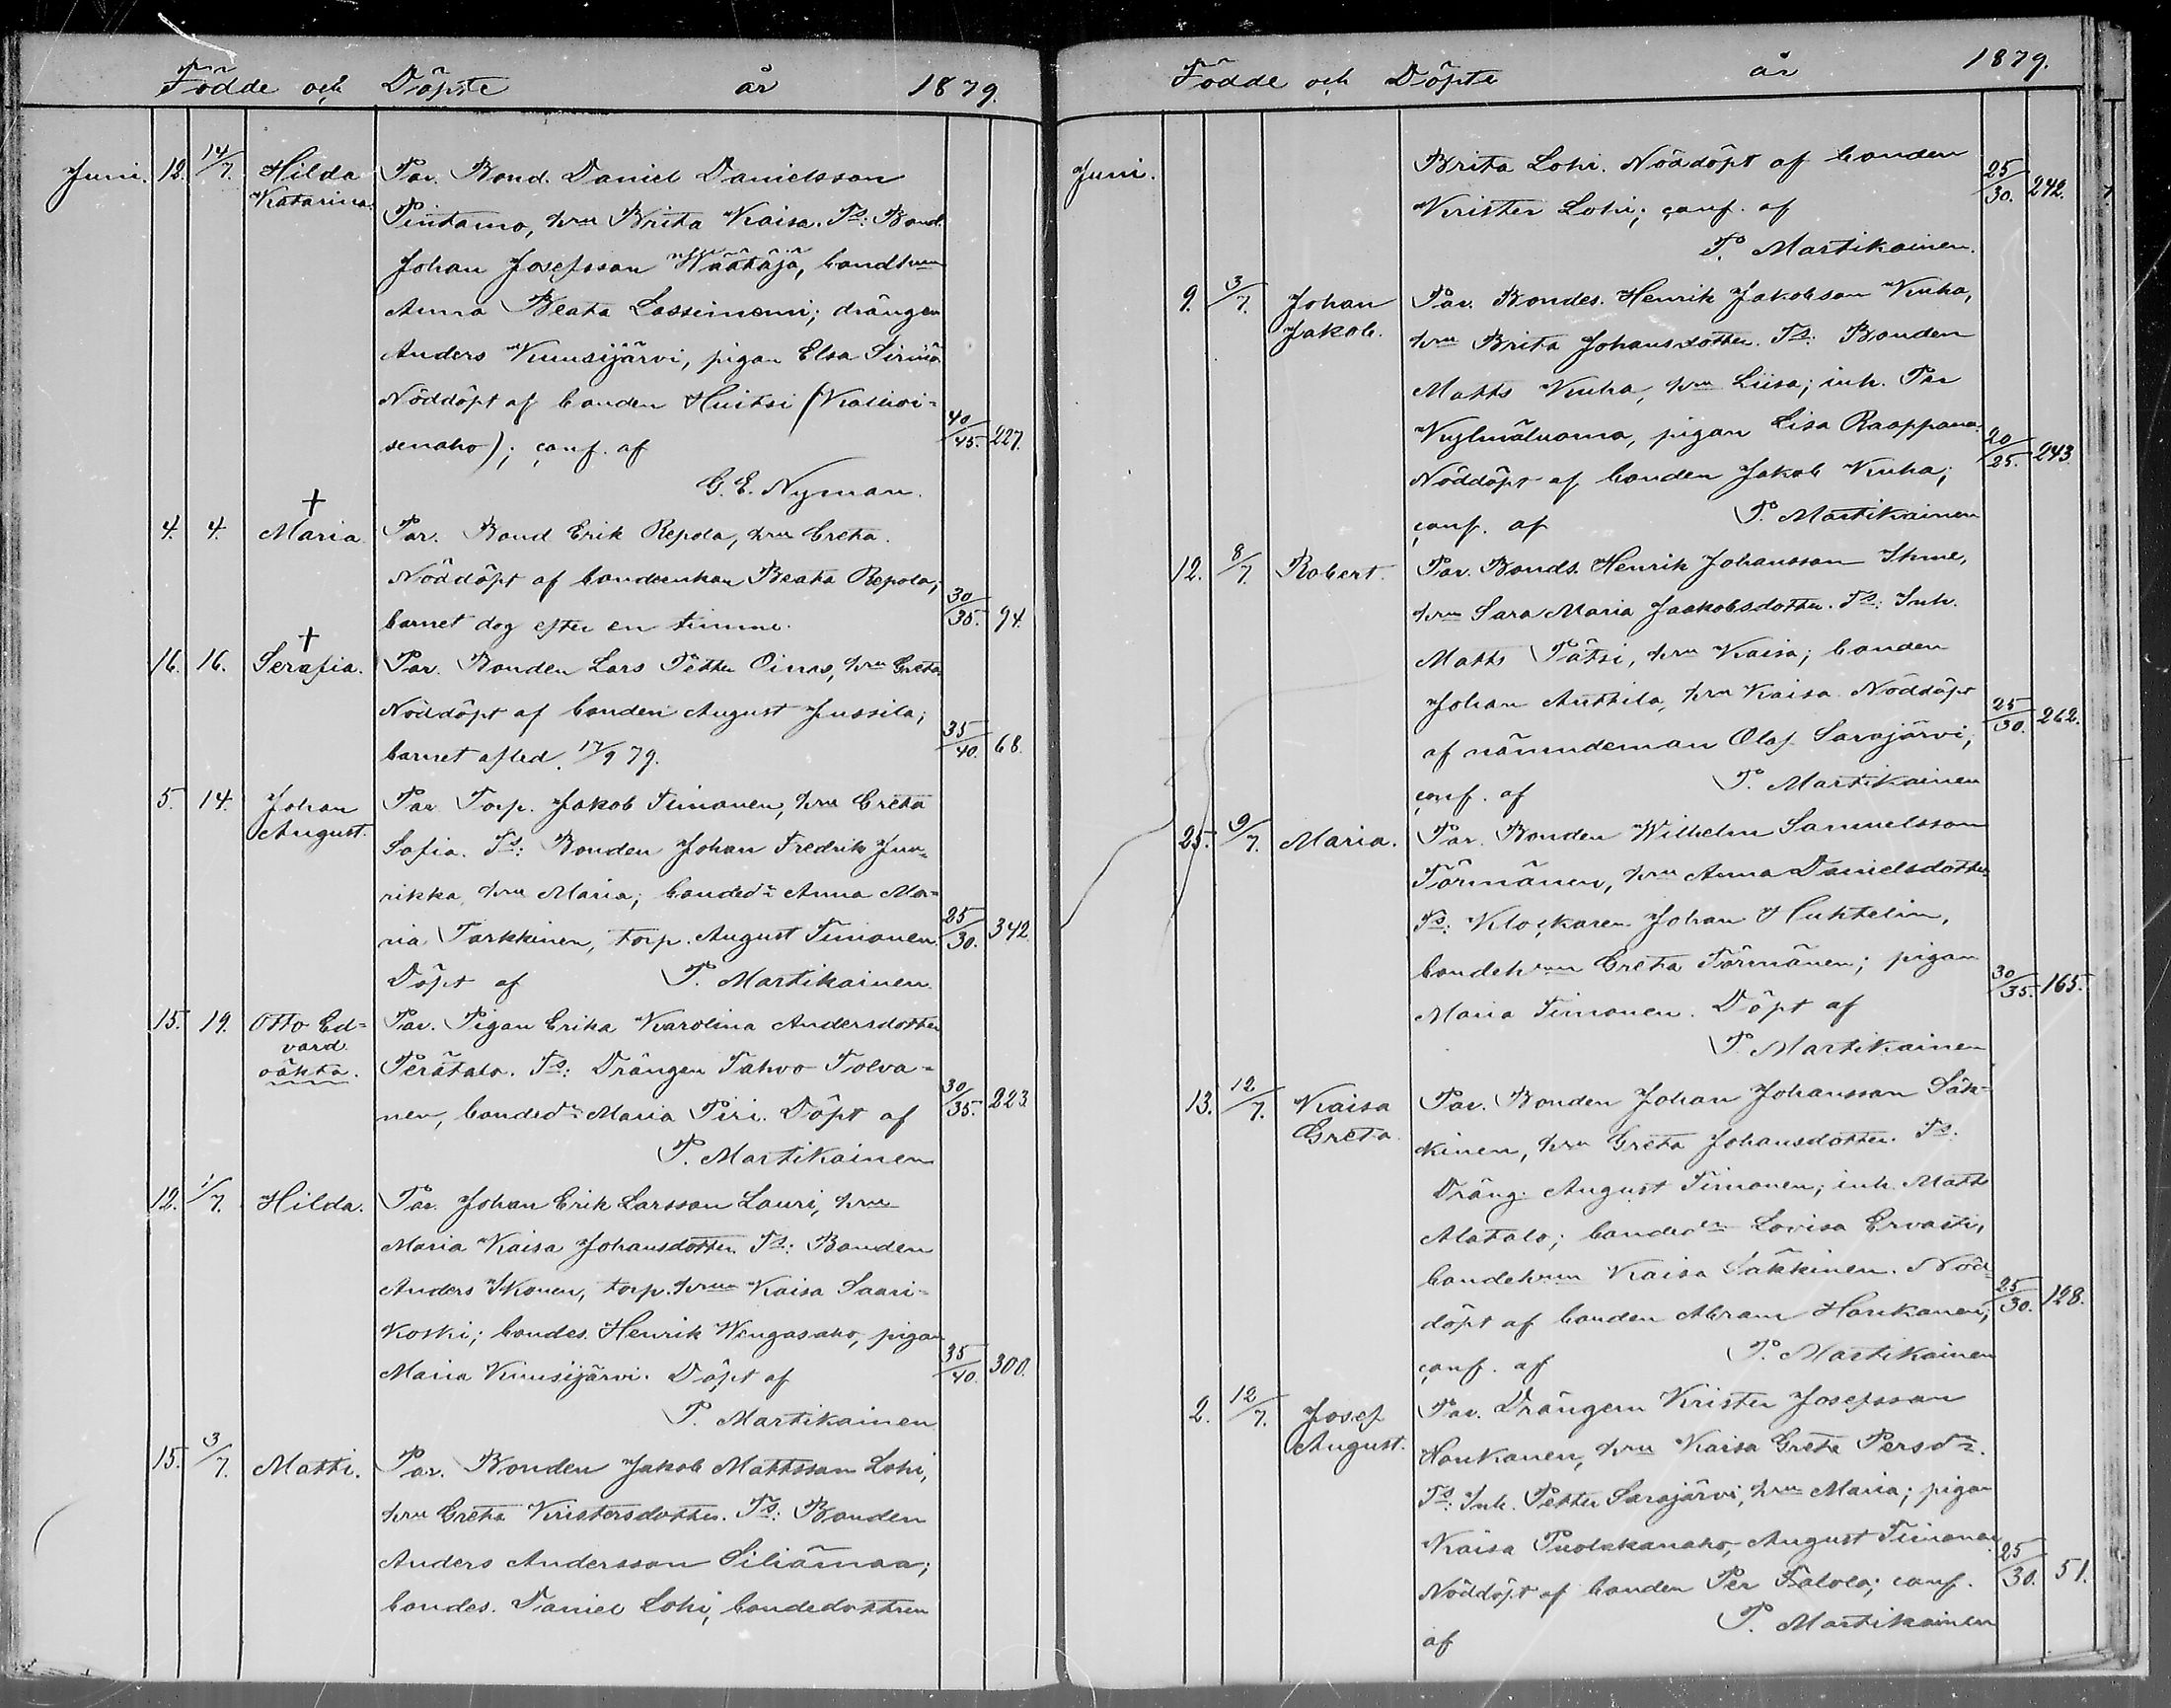 Födde och Döpte år 1879.
Juni. 12. 14/7. Hilda Par. Bond. Daniel Danielsson
Katarina. Pintamo, hru Brita Kaisa. Ts: Bond.
Johan Josefsson Häätäjä, bondhrun
Anna Beata Lassinemi; drängen
Anders Kuusijärvi, pigan Elsa Sirniö
Nöddöpt af bonden Huitsi (Kallioi-
senaho); conf. af 40/45. 227.
G. E. Nyman.
4. 4. † Maria. Par. Bond Erik Repola, hru Greta.
Nöddöpt af bondeenkan Beata Repola;
barnet dog efter en timme. 30/35. 94.
16. 16. † Serafia. Par. Bonden Lars Petter Oinas, hru Greta.
Nöddöpt af bonden August Jussila;
barnet afled. 17/9 79. 35/40. 68.
5. 14. Johan Par Torp. Jakob Timonen, hru Greta
August. Sofia. Ts: Bonden Johan Fredrik Juu-
rikka, hru Maria; bonded:r Anna Ma-
ria Tarkkinen, torp. August Timonen. 25/30. 342.
Döpt af P. Martikainen.
15. 19. Otto Ed- Par. Pigan Erika Karolina Andersdotter
vard. oäkta. Perätalo. Ts: Drängen Tahvo Tolva-
nen, bonded:r Maria Piri. Döpt af 30/35. 223.
P. Martikainen
12. 1/7. Hilda. Par. Johan Erik Larsson Lauri, hru
Maria Kaisa Johansdotter. Ts: Bonden
Anders Ikonen, torp. hrun Kaisa Saari-
koski; bondes. Henrik Wengasaho, pigan
Maria Kuusijärvi. Döpt af 35/40. 300.
P. Martikainen
15. 3/7. Matti. Par. Bonden Jakob Mattsson Lohi,
hru Greta Kristersdotter. Ts: Bonden
Anders Andersson Siliämaa;
bondes. Daniel Lohi, bondedottren
Födde och Döpte år 1879.
Juni. Brita Lohi. Nöddöpt af bonden
Krister Lohi; conf. af 25/30. 242.
P. Martikainen.
9. 3/7. Johan Par. Bondes. Henrik Jakobson Kuha,
Jakob. hru Brita Johansdotter. Ts: Bonden
Matts Kuha, hru Liisa; inh. Par
Kylmäluoma, pigan Lisa Raappana.
Nöddöpt af bonden Jakob Kuha; 20/25. 243.
conf. af P. Martikainen
12. 8/7. Robert. Par. Bonds. Henrik Johansson Ihme,
hru Sara Maria Jaakobsdotter. Ts: Inh.
Matts Pätsi, hru Kaisa; bonden
Johan Anttila, hru Kaisa. Nöddöpt
af nämndeman Olaf Sarajärvi; 25/30. 262.
conf. af P. Martikainen
25. 9/7. Maria. Par. Bonden Wilhelm Samuelsson
Törmänen, hru Anna Danielsdotter
Ts: Klockaren Johan Huhtelin,
bondehrun Greta Törmänen; pigan
Maria Timonen. Döpt af 30/35. 165.
P. Martikainen
13. 12/7. Kaisa Par. Bonden Johan Johansson Säk-
Greta. kinen, hru Greta Johansdotter. Ts:
Dräng. August Timonen; inh. Matts
Alatalo; bonded:r Lovisa Ervasti,
bondehrun Kaisa Säkkinen. Nöd-
döpt af bonden Abram Honkanen; 25/30. 128.
conf. af P. Martikainen
2. 12/7. Josef Par. Drängen Krister Josefsson
August. Honkanen, hru Kaisa Greta Persd:r.
Ts: Inh. Petter Sarajärvi, hru Maria; pigan
Kaisa Puolakanaho, August Timonen
Nöddöpt af bonden Per Talola; conf. 25/30. 51.
af P. Martikainen